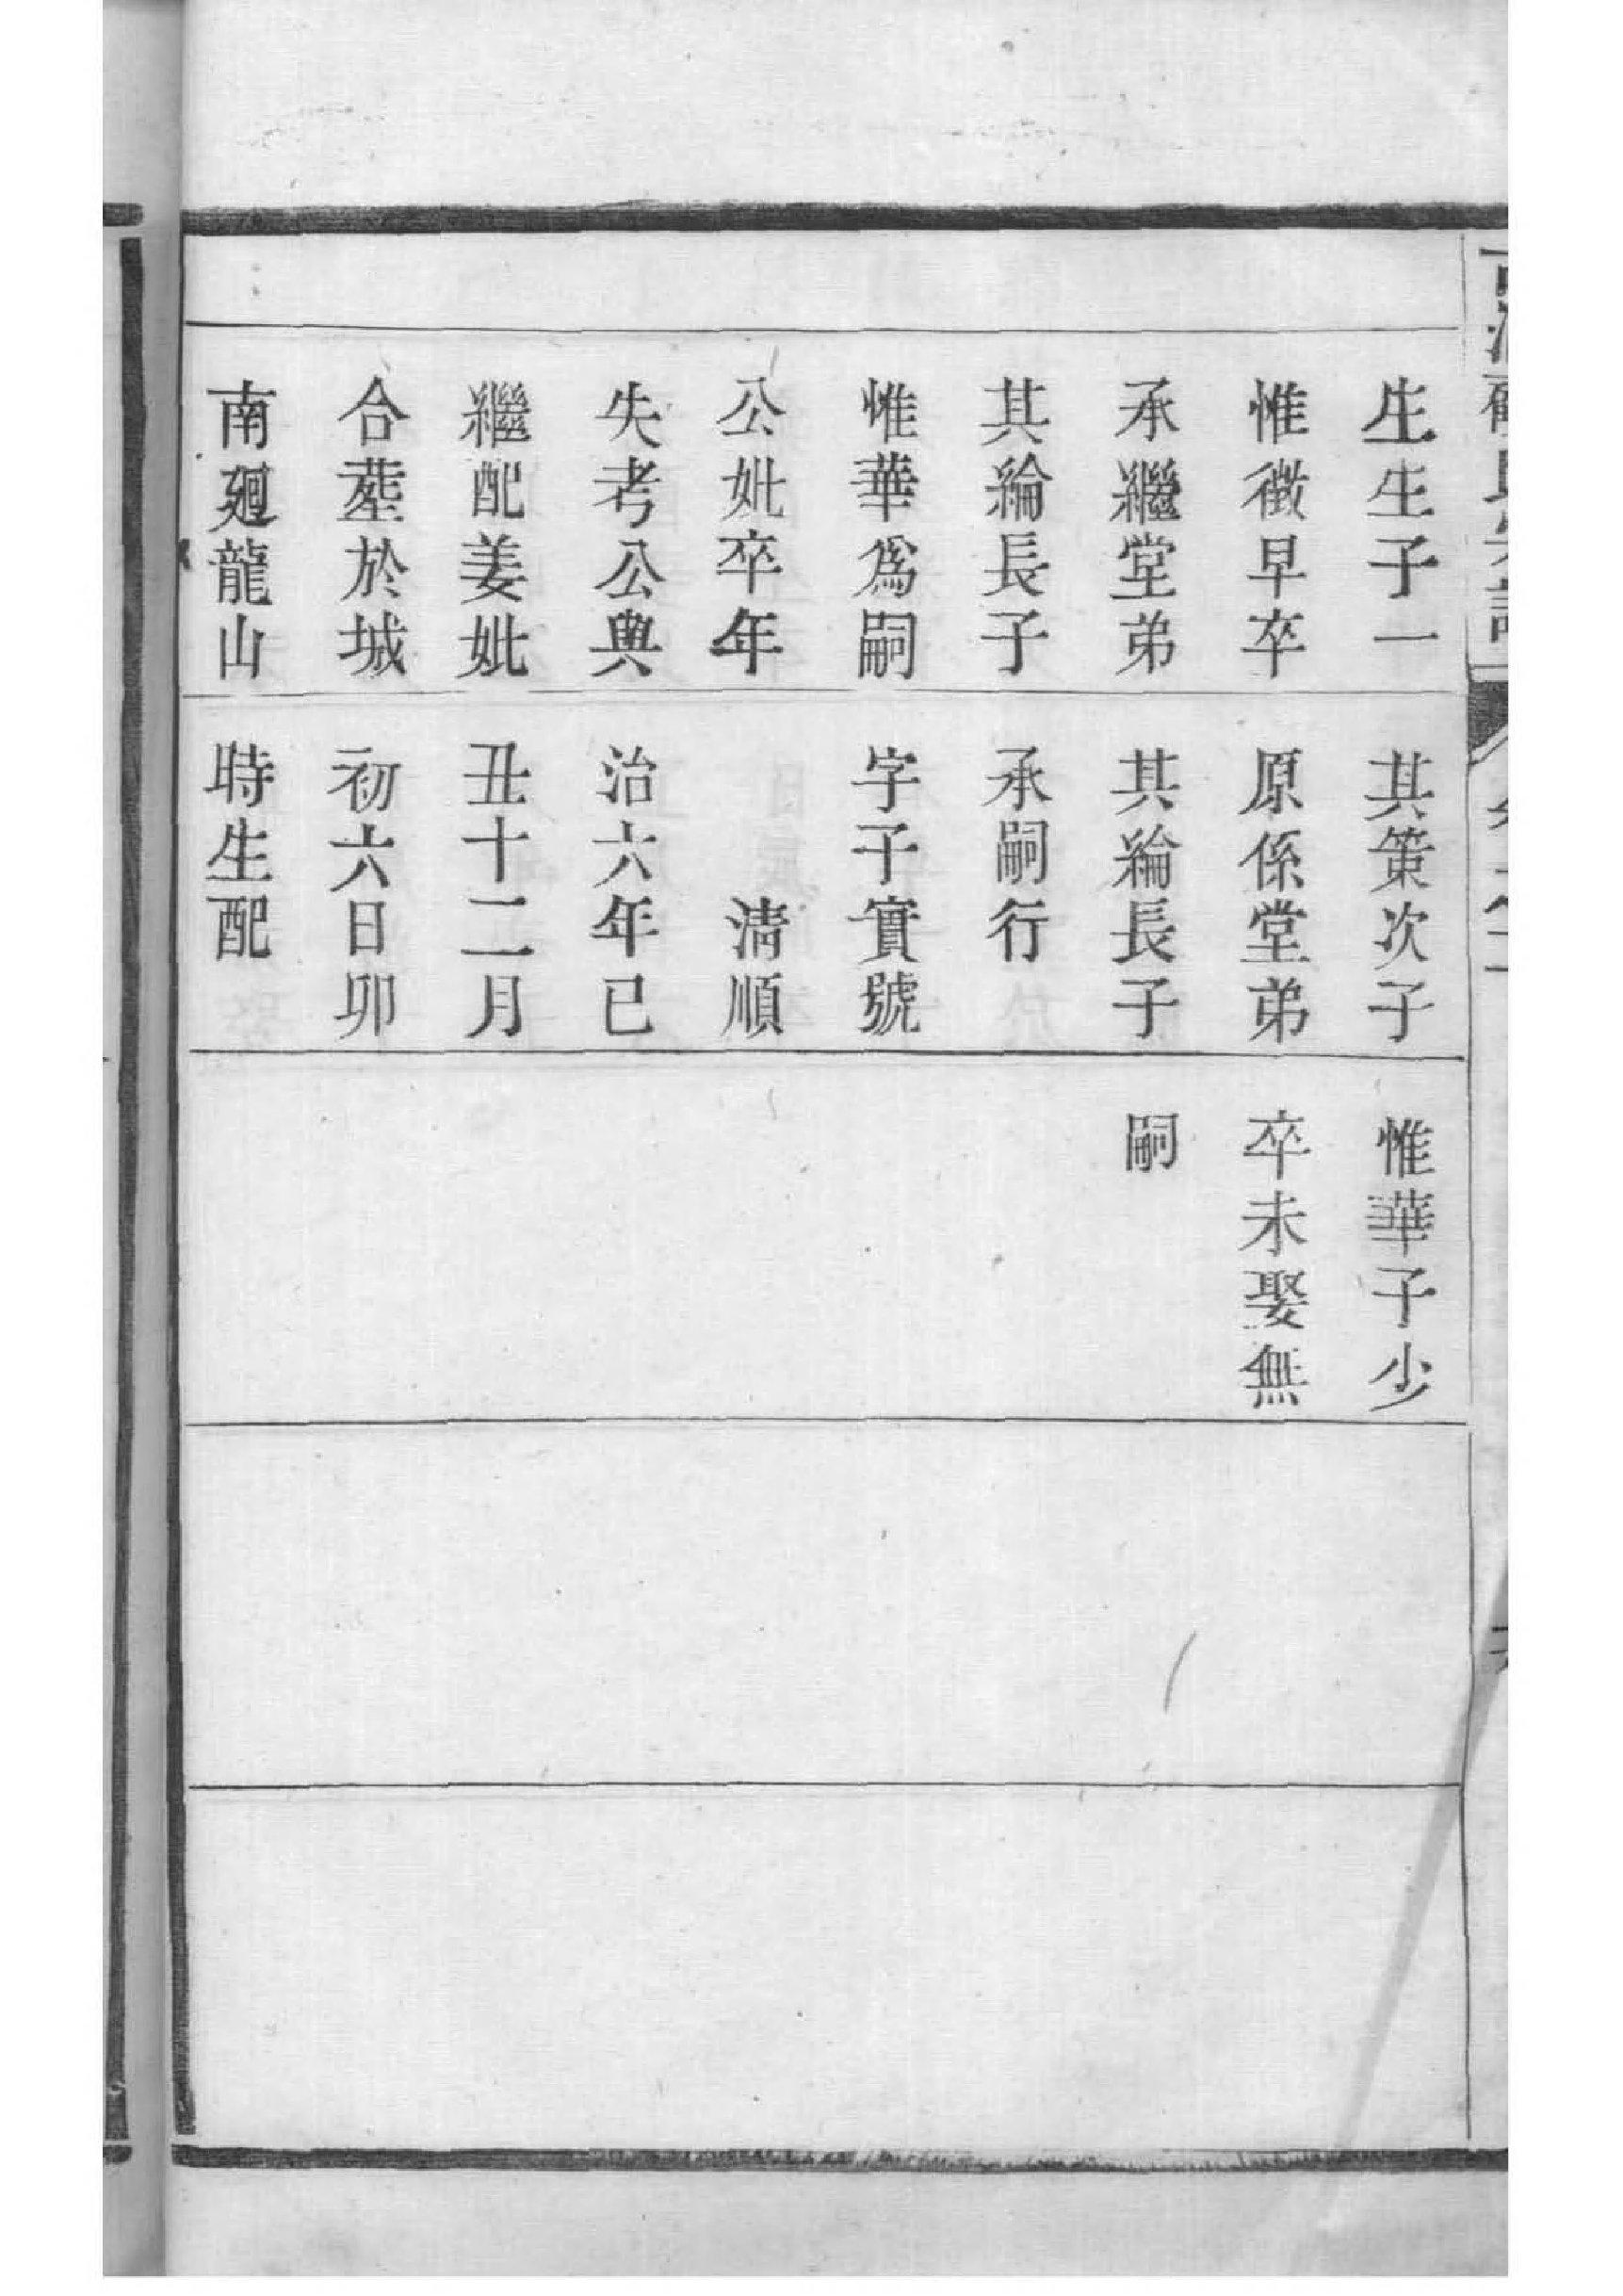 生生子一
惟徵早卒
承繼堂弟
其綸長子
惟華爲嗣
公妣卒年
失考公與
繼配姜妣
合塟於城
南廻龍山
其策次子
原係堂弟
其綸長子
承嗣行
字子實號
清順
治六年已
丑十二月
初六日卯
時生配
惟華子少
卒未娶無
嗣